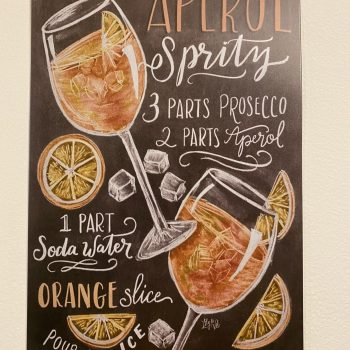 APEROL
Spritz
3 PARTS PROSECCO
2 PARTS Aperol
1 PART
Soda Water
ORANGE slice
POUR
ICE